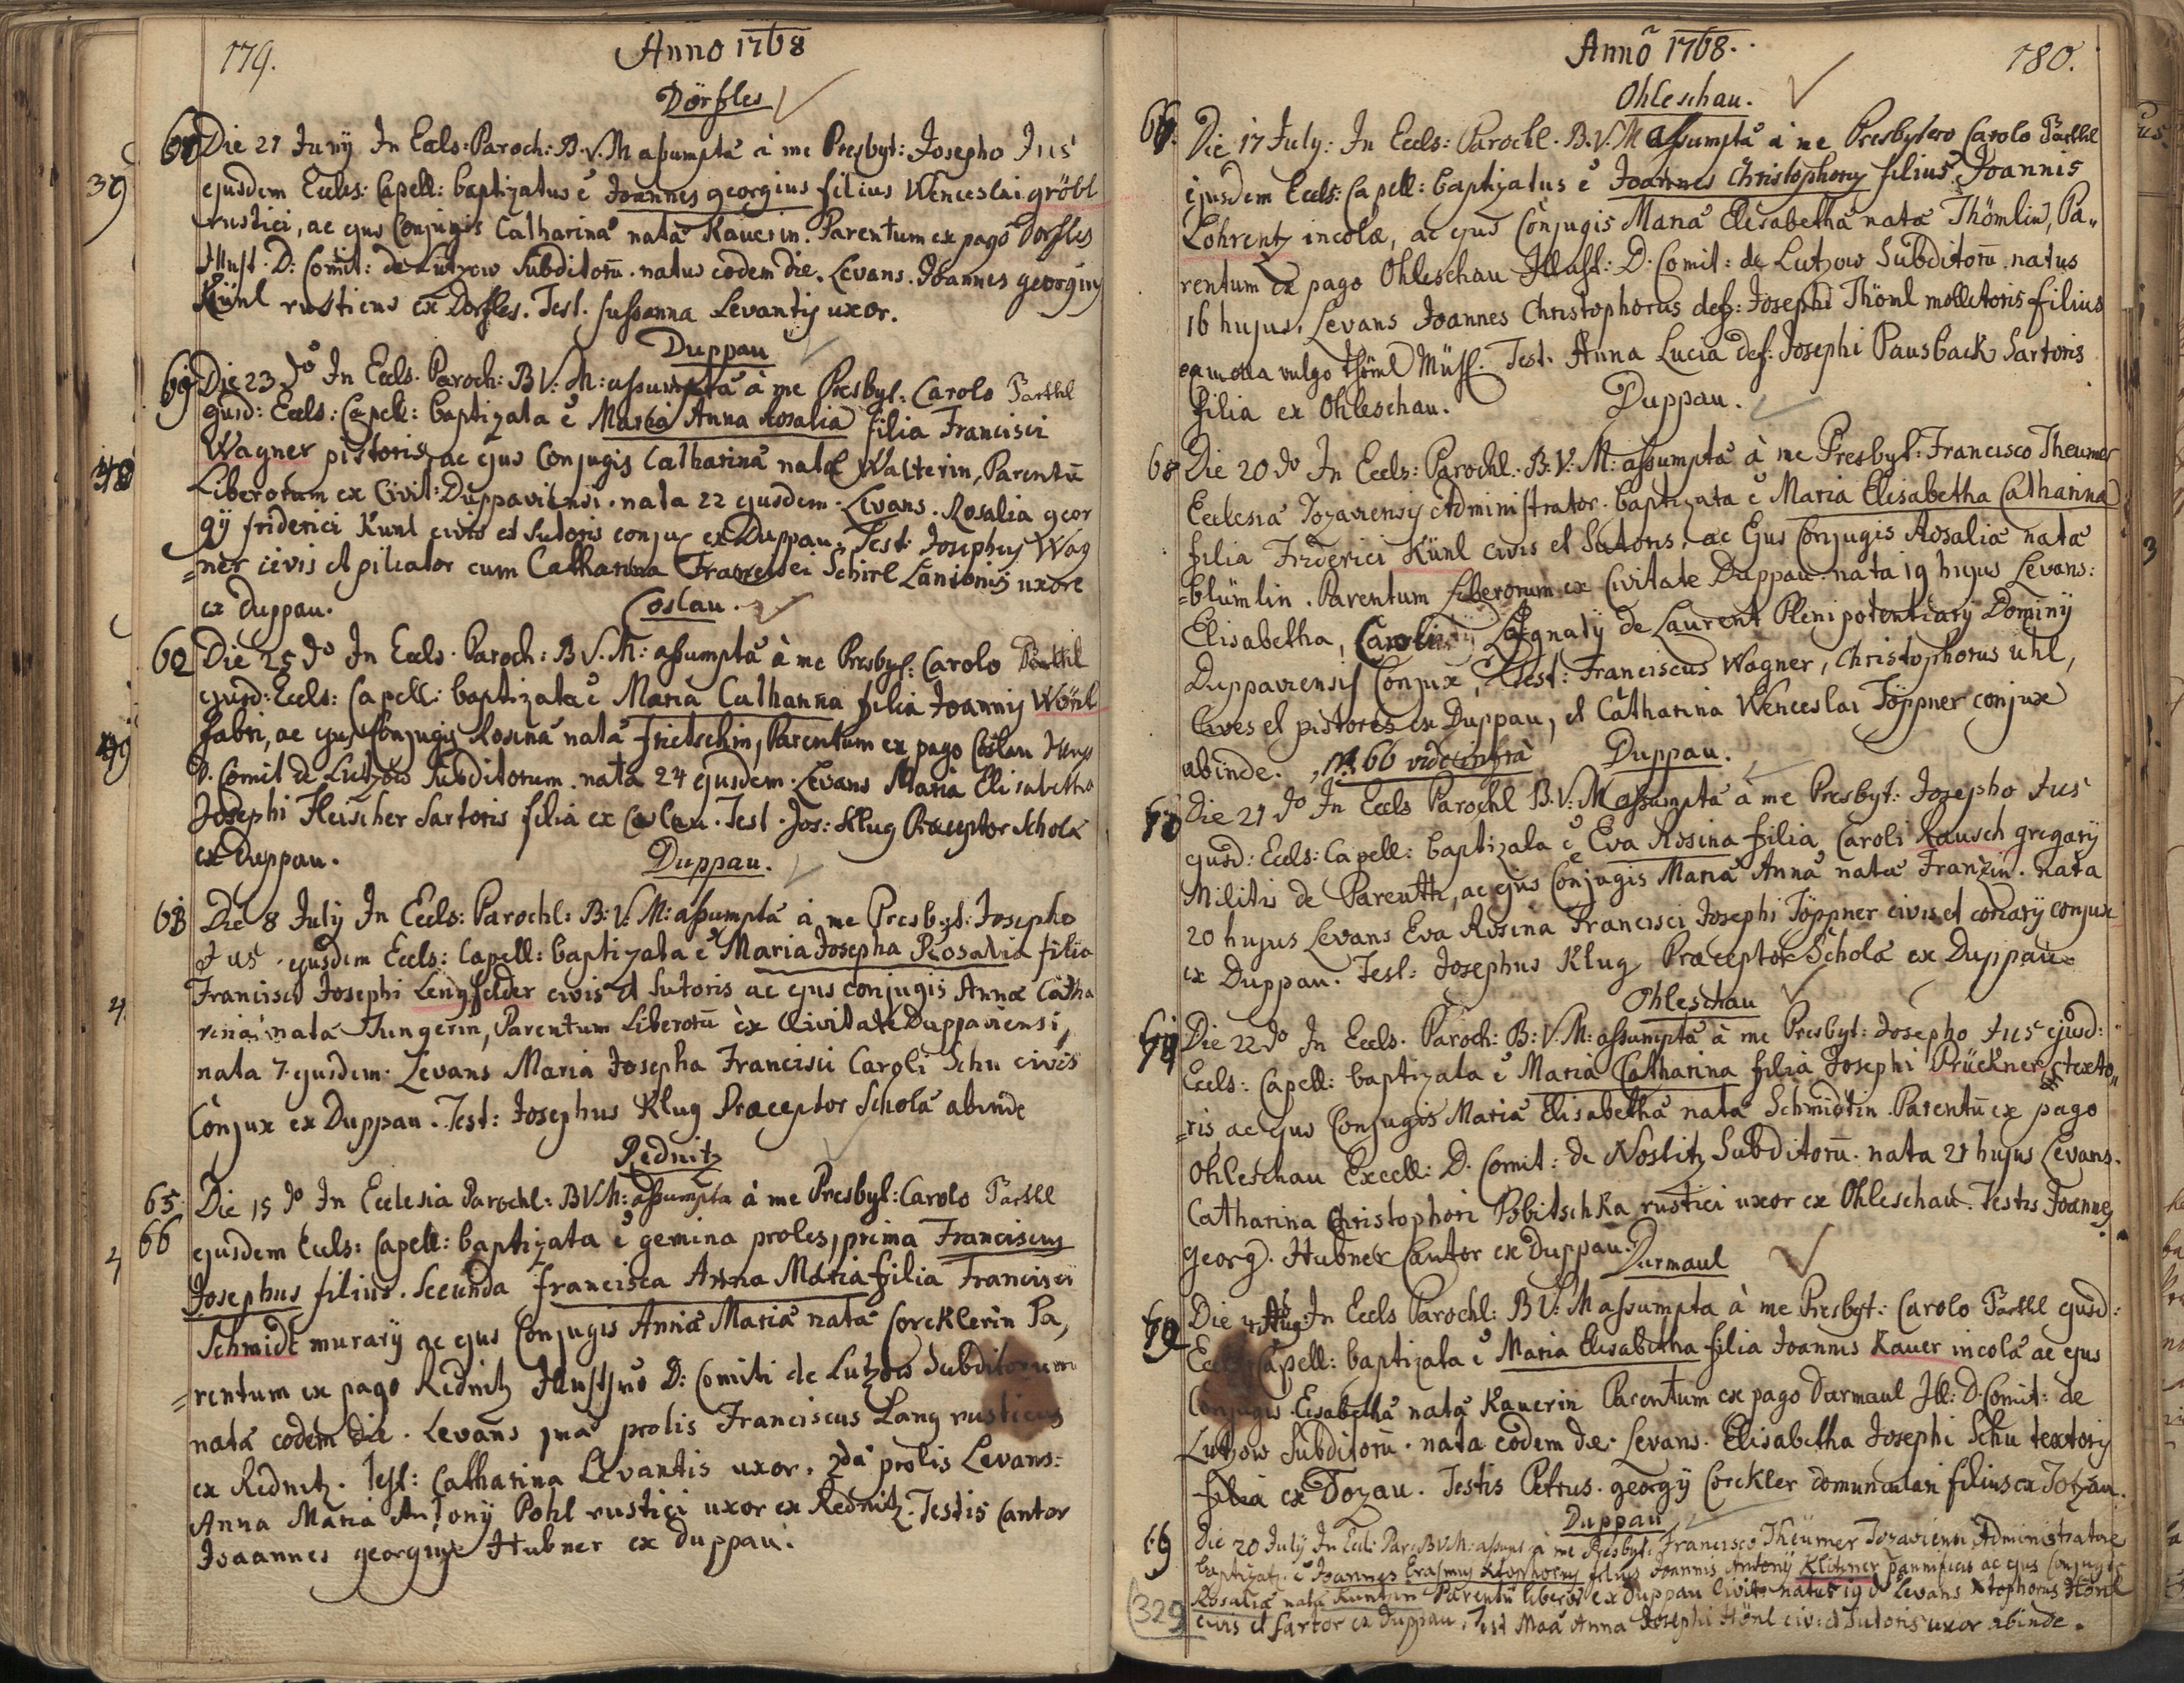 179.
Anno 1768
Dörfles
60 Die 21 Juny In Eccls: Paroch: B. V. M assumptâ à me Presbyt: Josepho Jus
39
ejusdem Eccls: Capell: baptizatus ē Joannes georgius filius Wenceslai gröbl
rustici, ac ejus Conjugis Catharinâ natâ Kauerin. Parentum ex pago Dorfles
Illust. D: Comit: de Lützow Subditorū. natus eodem die. Levans. Joannes georgius
Künl rusticus ex Dorfles. Test. sussanna Levantis uxor.
Duppau
61 Die 23 do In Eccls. Paroch: B V: M: assumptâ à me Presbyt. Carolo Parthl
ejusd: Eccls: Capell: baptizata ē Maria Anna Rosalia filia Francisci
Wagner pistoris, ac ejus Conjugis Catharinâ natâ Walterin, Parentū
Liberorum ex Civit: Duppaviensi. nata 22 ejusdem. Levans. Rosalia geor
gÿ friderici Künl civis et sutoris conjux ex Duppau. Test: Josephus Wag
=ner civis et pileator cum Catharina Francisci Schirl Lanionis uxore
ex Duppau.
Coslau.
62 Die 25 do In Eccls. Paroch: B V. M: assumptâ à me Presbyt: Carolo Parthl
ejusd: Eccls: Capell: baptizata ē Maria Catharina filia Joannis Wönl
fabri, ac ejus Conjugis Rosinâ natâ frietschin, Parentum ex pago Coslau Illust
D. Comit de Lutzow Subditorum. nata 24 ejusdem. Levans Maria Elisabetha
Josephi Fleischer Sartoris filia ex Coslau. Test. Jos: Klug Praeceptor Scholâ
ex Duppau.
Duppau.
63 Die 8 July In Eccls: Parochl: B: V: M: assumptâ à me Presbyt: Josepho
Jus. ejusdem Eccls: Capell: baptizata ē Maria Josepha Rosalia filia
Francisci Josephi Lengfelder civis et Sutoris ac ejus conjugis Annæ Catha
rinâ natâ Jungerin, Parentum Liberorū ex Civitate Duppaviensi,
nata 7. ejusdem. Levans Maria Josepha Francisci Caroli Schu civis
Conjux ex Duppau. Test: Josephus Klug Praeceptor Scholâ abinde
Rednitz
65. Die 15 do In Ecclesia Parochl: BVM: assumpta à me Presbyt: Carolo Parthl
66 ejusdem Eccls: Capell: baptizata ē gemina proles, prima Franciscus
Josephus filius. Secunda francisca Anna Maria filia Francisci
Schmidt murarÿ ac ejus Conjugis Annâ Mariâ natâ Corcklerin Pa,
=rentum ex pago Rednitz Illustssmō D: Comiti de Lutzow Subditorum
nata eodem die. Levans 1mâ prolis Franciscus Lang rusticus
ex Rednitz. Test: Catharina Levantis uxor. 2dâ prolis Levans:
Anna Maria Antonÿ Pohl rustici uxor ex Rednitz. Testis Cantor
Joaannes georgius Hubner ex duppau.
Annō 1768.
180.
Ohleschau.
Die 17 July: In Eccls: Parochl. B. V. M assumptâ à me Presbytero Carolo Parthl
ejusdem Eccls: Capell: baptizatus ē Joannes Christophorus filius Joannis
Lohrentz incolæ, ac ejus Conjugis Mariâ Elisabethâ natâ Thömlin, Pa,,
rentum ex pago Ohleschau Illust: D. Comit: de Lutzow Subditorū. natus
16 hujus. Levans Joannes Christophorus def: Josephi Thöml mollitoris filius
ea mola vulgo thöml Mühl. Test. Anna Lucia def: Josephi Pausback Sartoris
filia ex Ohleschau.
Duppau.
68 Die 20 do In Eccls: Parochl: B: V: M: assumptâ à me Presbyt: Francisco Theumer
Ecclesiâ Tozaviensis Administrator. baptizata ē Maria Elisabetha Catharina
filia Friderici Künl civis et Sutoris, ac Ejus Conjugis Rosaliâ natâ
=blümlin. Parentum Liberorum ex Civitate Duppau. nata 19 hujus Levans:
Elisabetha, Caroli Ignatÿ de Laurent Plenipotentiarÿ Dominÿ
Duppaviensis Conjux, Test: Franciscus Wagner, Christophorus uhl,
Cives et pistores ex Duppau, et Catharina Wenceslai Töppner conjux
abinde. No. 66 vide infrà
Duppau.
Die 21 do In Eccls Parochl B: V: M assumptâ à me Presbyt: Josepho Jus
ejusd: Eccls: Capell: baptizata ē Eva Rosina filia Caroli Rausch gregarÿ
Militis de Pareuth, ac ejus Conjugis Mariâ Annâ natâ Franzin. nata
20 hujus Levans Eva Rosina Francisci Josephi Töppner civis et coriarÿ conjux
ex Duppau. Test: Josephus Klug Praeceptor Scholâ ex Duppau.
Ohleschau
Die 22 do In Eccls. Paroch: B: V: M: assumptâ à me Presbyt: Josepho Jus ejusd:
Eccls: Capell: baptizata ē Maria Catharina filia Josephi Prückner texto,,
=ris ac ejus Conjugis Mariâ Elisabethâ natâ Schmidtin. Parentū ex pago
Ohleschau Excell: D. Comit: de Nostitz Subditorū. nata 21 hujus Levans.
Catharina Christophori Pobitschka rustici uxor ex Ohleschau. Testis Joannes
Georg. Hubner Cantor ex duppau.
Durmaul
Die 4 Aug: In Eccls Parochl: B V: M assumpta à me Presbyt: Carolo Parthl ejusd:
Eccls: Capell: baptizata ē Maria Elisabetha filia Joannis Kauer incolâ ac ejus
Conjugis Eisabethâ natâ Kauerin Parentum ex pago Darmaul Ill: D. Comit: de
Lutzow Subditorū. nata eodem die. Levans. Elisabetha Josephi Schu textoris
filia ex Tozau. Testis Petrus. georgÿ Corckler domuncularii filius ex Totzau.
Duppau
69 Die 20 July In Eccl: Par: B V M: assump: à me Presbyt. Francisco Theümer Tozaviensi Administratore
baptizat. ē Joannes Erasmus Xstophorus filius Joannis Antonÿ Klitzner pannificis ac ejus Conjugis
Rosaliâ natâ Kuntzin Parentū liberorū ex Duppau Civitate natus 19 do Levans Xtophorus Hönl
civis et sartor ex Duppau. Test Maâ Anna Josephi Hönl civis et Sutoris uxor abinde.
329